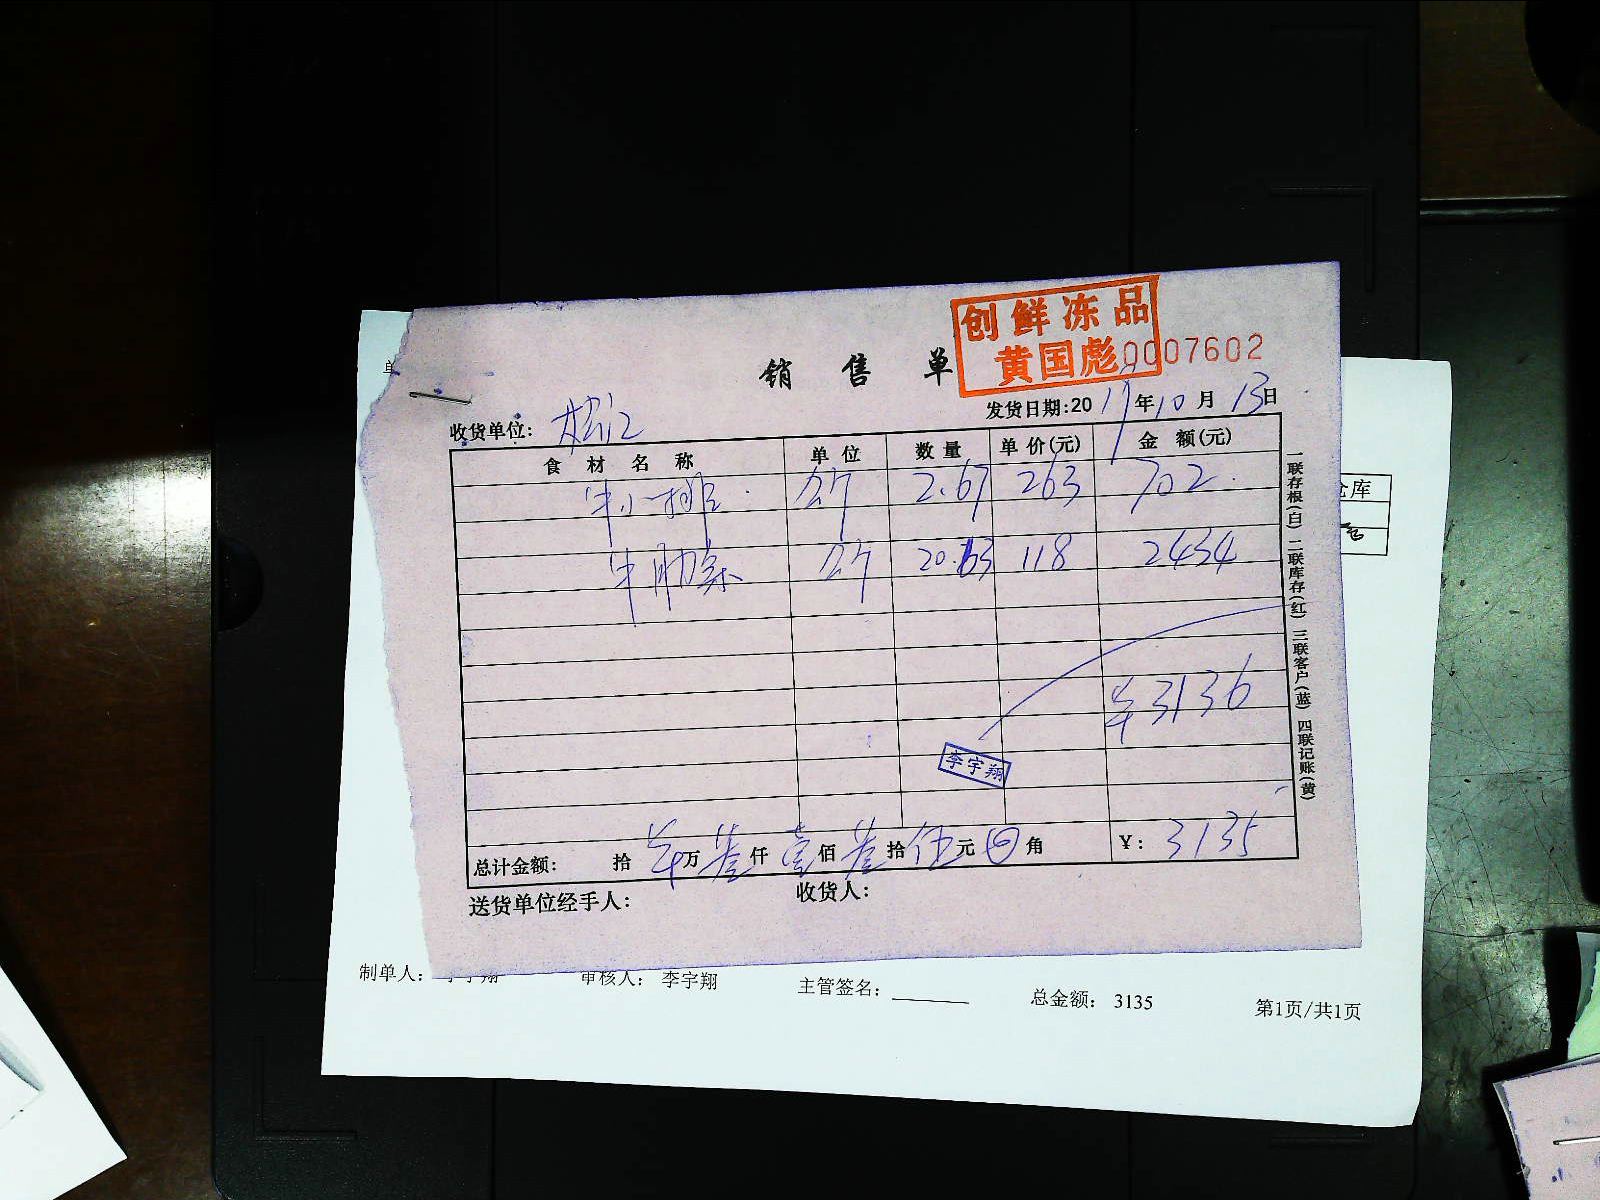 创鲜冻品
黄国彪
销售单
0007602
收货单位: 松江
发货日期:2019年10月13日
食材名称 单位 数量 单价(元) 金额(元)
牛小排 公斤 2.67 263 702
牛肋条 公斤 20.63 118 2434
¥3136
李宇翔
总计金额: 拾 万叁仟壹佰叁拾伍元 角 ¥: 3135
送货单位经手人: 收货人:
一联存根(白) 二联库存(红) 三联客户(蓝) 四联记账(黄)
仓库
制单人: 李宇翔 审核人: 李宇翔 主管签名: 总金额: 3135 第1页/共1页